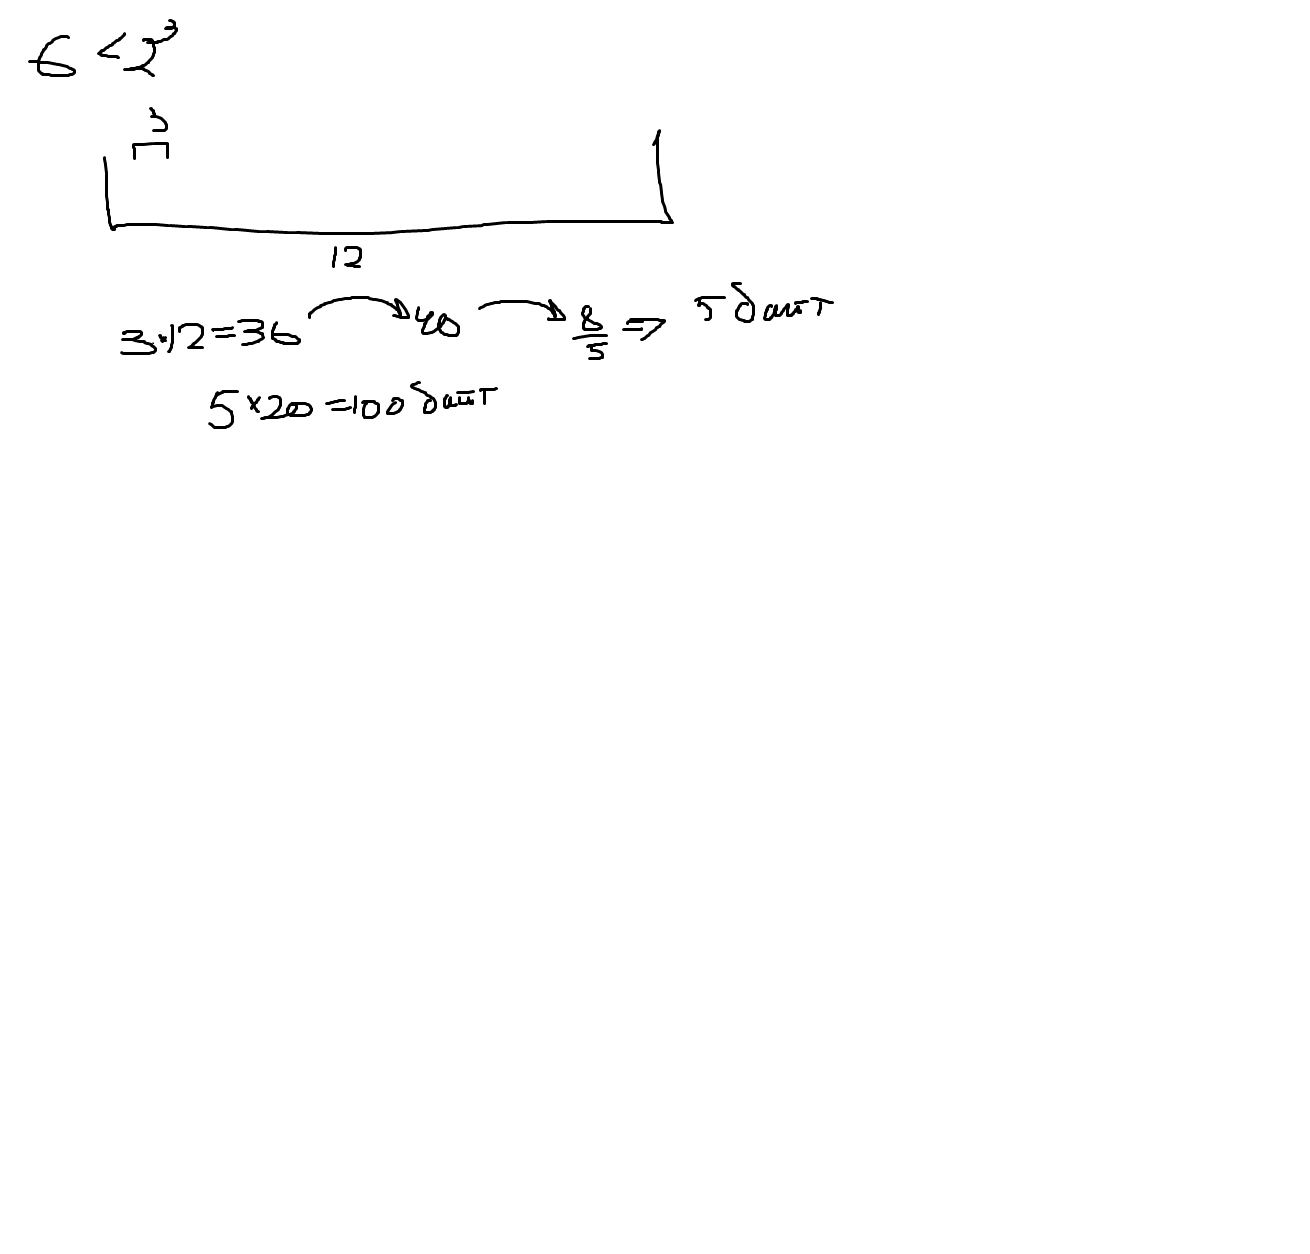 6 < 2³
3
12
3·12=36 → 40 → 8/5 => 5 байт
5×20=100 байт